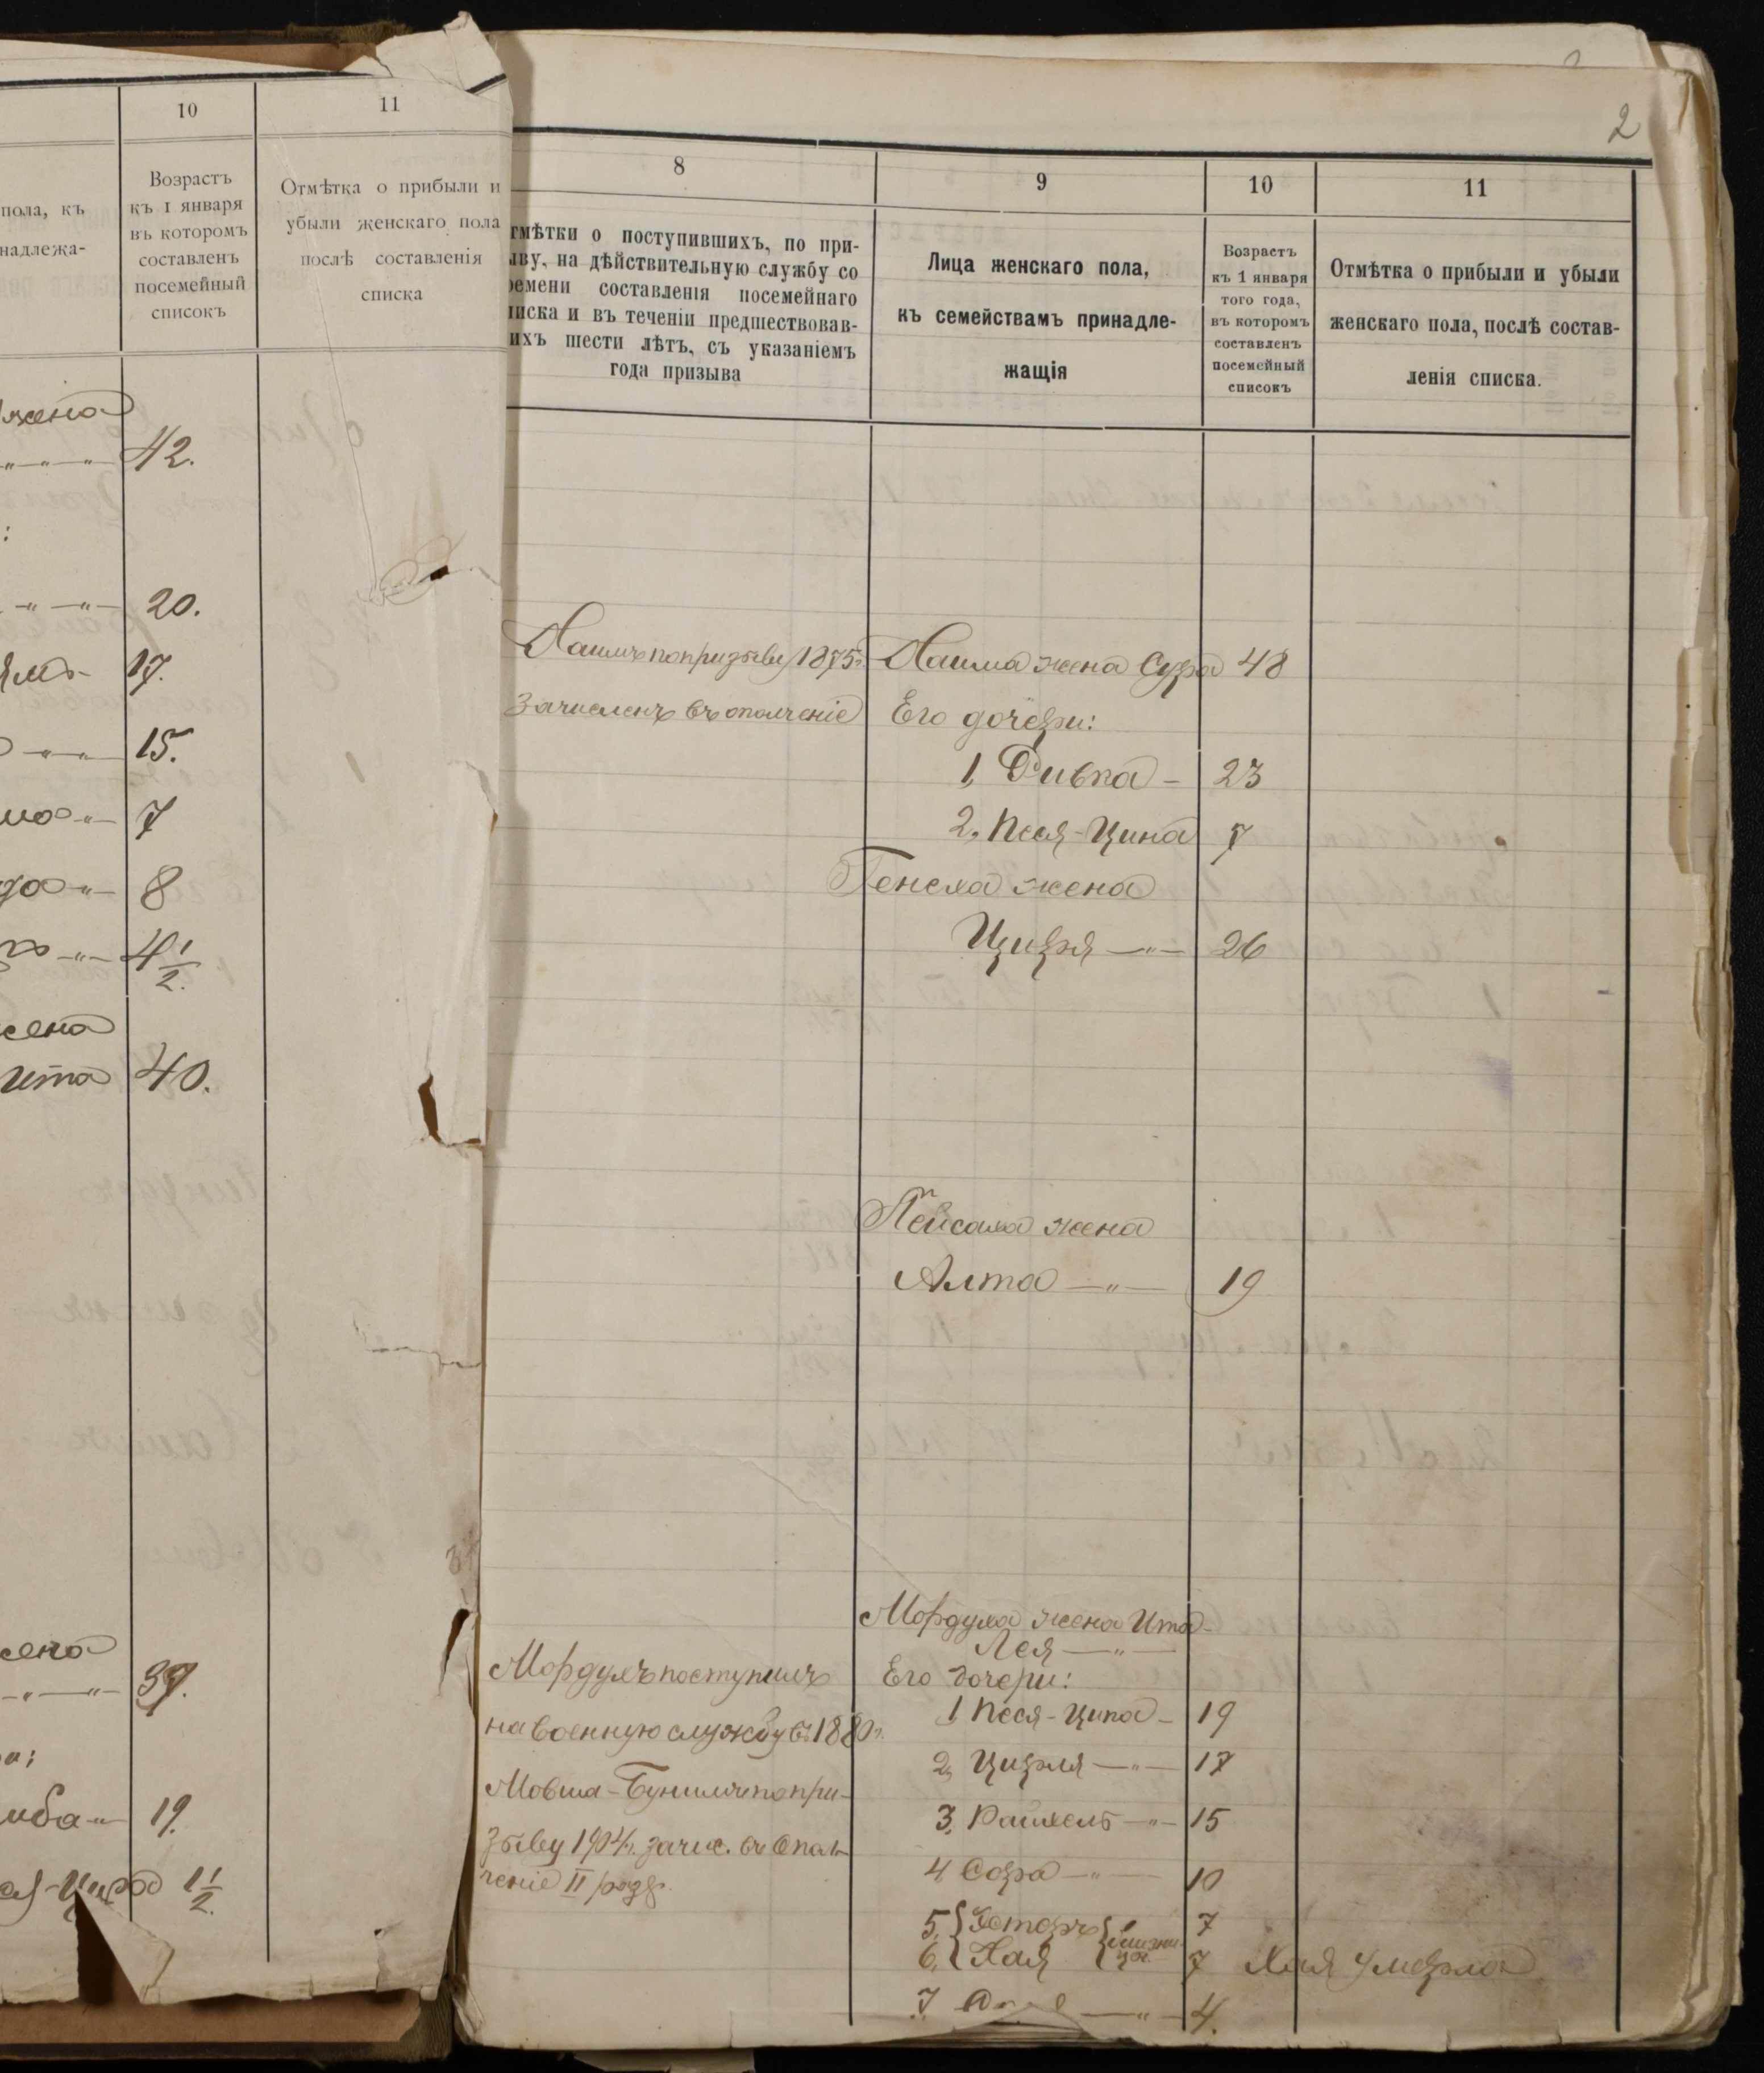 10
11
пола, къ
надлежа-
Возрастъ
къ 1 января
въ которомъ
составленъ
посемейный
списокъ
Отмѣтка о прибыли и
убыли женскаго пола
послѣ составленія
списка
жена
42.
20.
17.
15.
7
8
4 1/2.
жена
Ита 40.
жена
39.
19.
1 1/2.
2
8
9
10
11
тмѣтки о поступившихъ, по при-
ыву, на дѣйствительную службу со
ремени составленія посемейнаго
писка и въ теченіи предшествовав-
ихъ шести лѣтъ, съ указаніемъ
года призыва
Лица женскаго пола,
къ семействамъ принадле-
жащія
Возрастъ
къ 1 января
того года,
въ которомъ
составленъ
посемейный
списокъ
Отмѣтка о прибыли и убыли
женскаго пола, послѣ состав-
ленія списка.
Хаимъ по призыву 1875 г.
зачисленъ въ ополченіе
Хаима жена Сура 48
Его дочери:
1, Ривка - 23
2, Песя-Ципа 7
Генеха жена
Цирля -"- 26
Пейсаха жена
Алта -"- 19
Мордуха жена Ита-
Лея -"-
Его дочери:
1 Песя-Ципа - 19
2, Цирля -"- 17
3, Рахель -"- 15
4 Сора -"- 10
5, Эстеръ 7
6, Хая близни-
ца 7 Хая умерла
7 -"- 4.
Мордухъ поступилъ
на военную службу въ 1880 г.
Мовша-Бунимъ по при-
зыву 1904 г. зачис. въ Опол-
ченіе II разр.